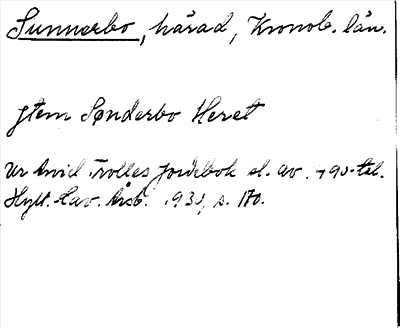 Sunnerbo, härad, Kronob. län.
Jtem Sønderbo Heret
Ur Arvid Trolles jordebok sl. av 90-tal.
Hylt.-Cav. Årsb. 193, s. 170.